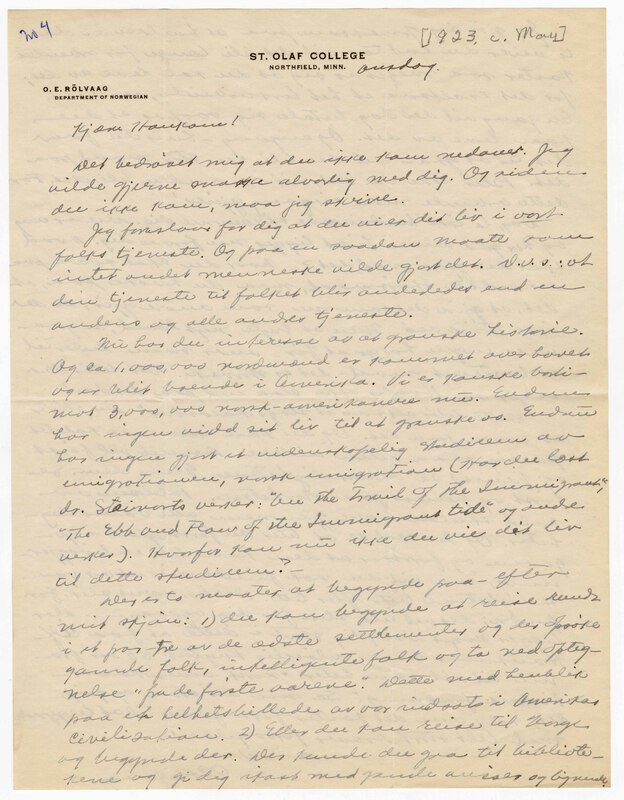 No 4
[1923, c. May]
ST. OLAF COLLEGE
NORTHFIELD, MINN.
onsdag.
O. E. RÖLVAAG
DEPARTMENT OF NORWEGIAN
Kjære Haukom!
Det bedrøvet mig at du ikke kom nedover. Jeg
vilde gjerne snakke alvorlig med dig. Og siden
du ikke kom, maa jeg skrive.
Jeg foreslaar for dig at du vier dit liv i vort
folks tjeneste. Og paa en saadan maate som
intet andet menneske vilde gjort det. D.v.s.: at
din tjeneste til folket blir anderledes end en
andens og alle andres tjeneste.
Nu har du interesse av at granske historie.
Og ca 1,000,000 nordmænd er kommet over havet
og er blit boende i Amerika. Vi er kanske borti-
mot 3,000,000 norsk-amerikanere nu. Endnu
har ingen viet sit liv til at granske os. Endnu
har ingen gjort et videnskapelig studium av
emigrationen, norsk emigration (Har du læst
dr. verker: "On The Trail of The Immigrant",
"The Ebb and Flow of the Immigrant tide" og andre
verker). Hvorfor kan nu ikke du vie dit liv
til dette studium? -
Der er to maater at begynde paa - efter
mit skjøn: 1) du kan begynde at reise rundt
i et par-tre av de ældste settlementer og der spørke
gamle folk, intelligente folk og ta ned opteg-
nelse "fra de første aarene". Dette med henblik
paa et helhetsbillede av vor indsats i Amerikas
civilisation. 2) Eller du kan reise til Norge
og begynde der. Der kunde du gaa til bibliote-
kene og gi dig ikast med gamle aviser og